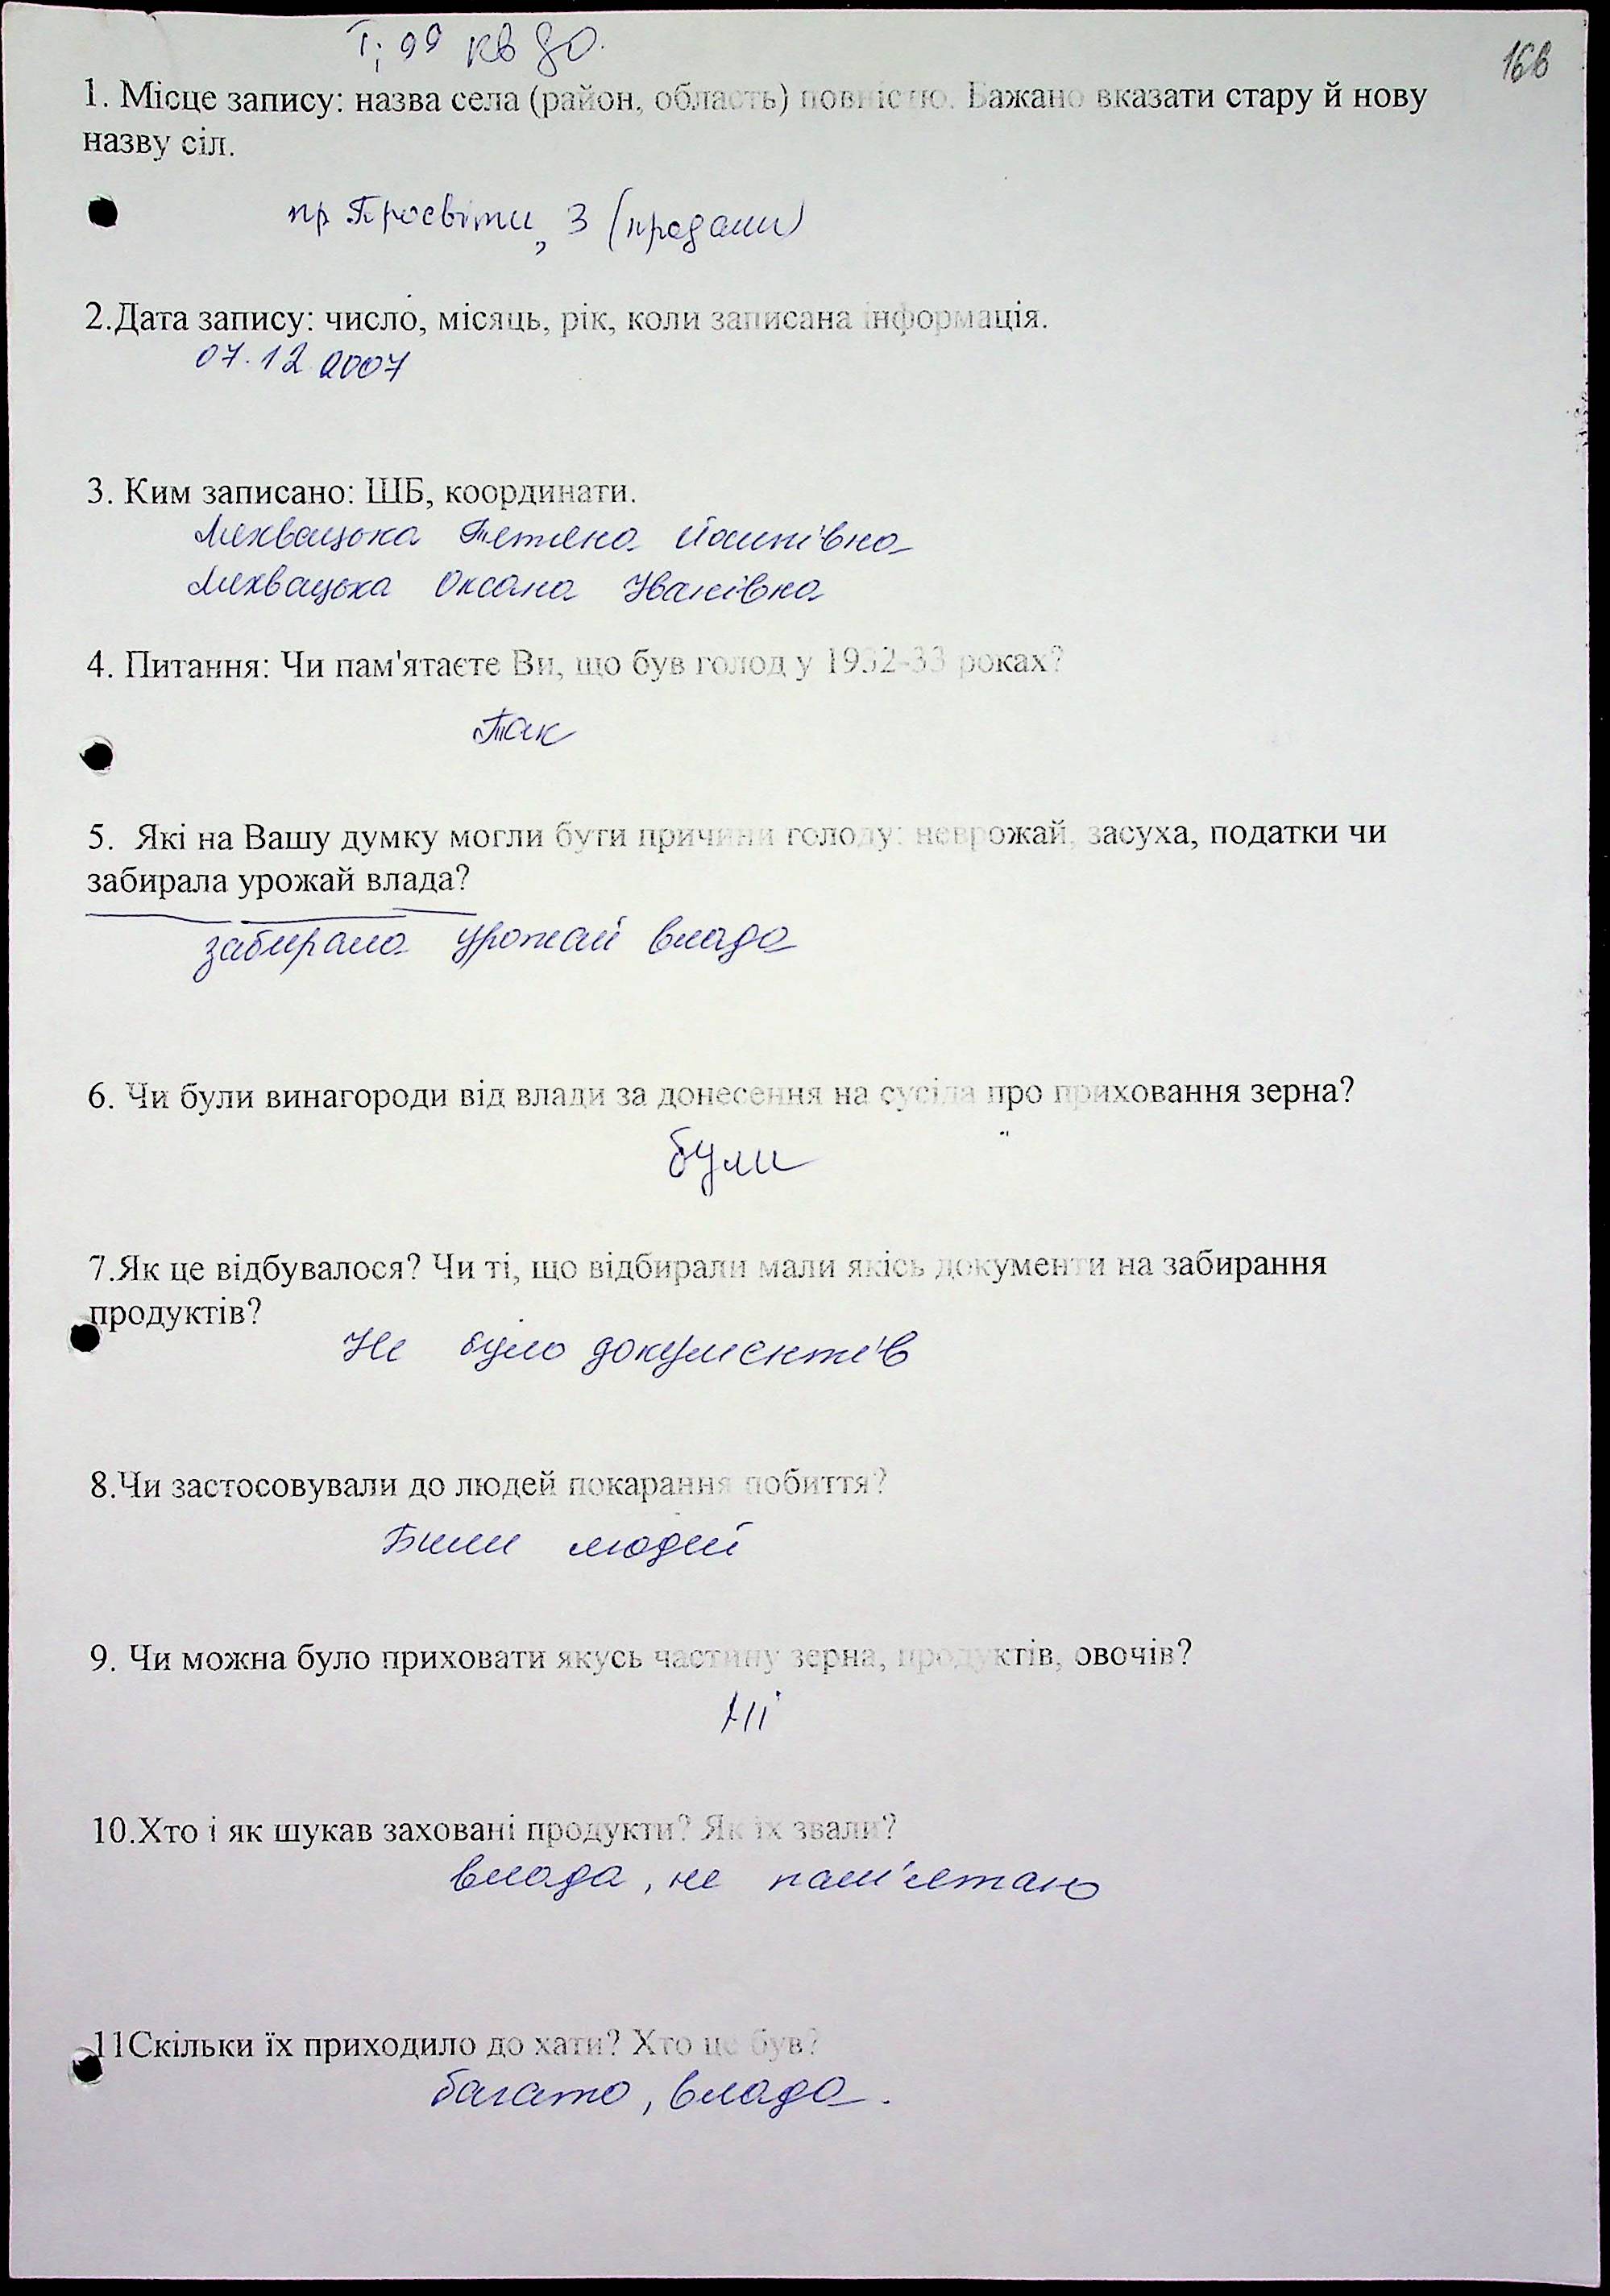 Т; 99 кв 80.
168
1. Місце запису: назва села (район, область) повністю. Бажано вказати стару й нову
назву сіл.
пр Просвіти, 3
2.Дата запису: число, місяць, рік, коли записана інформація.
07.12.2007
3. Ким записано: ШБ, координати.
Лихвацька Тетяна Йосипівна
Лихвацька Оксана Іванівна
4. Питання: Чи пам'ятаєте Ви, що був голод у 1932-33 роках?
Так
5. Які на Вашу думку могли бути причини голоду: неврожай, засуха, податки чи
забирала урожай влада?
забирала урожай влада
6. Чи були винагороди від влади за донесення на сусіда про приховання зерна?
були
7.Як це відбувалося? Чи ті, що відбирали мали якісь документи на забирання
продуктів?
Не було документів
8.Чи застосовували до людей покарання побиття?
Били людей
9. Чи можна було приховати якусь частину зерна, продуктів, овочів?
Ні
10.Хто і як шукав заховані продукти? Як їх звали?
влада, не пам'ятаю
11Скільки їх приходило до хати? Хто це був?
багато, влада.